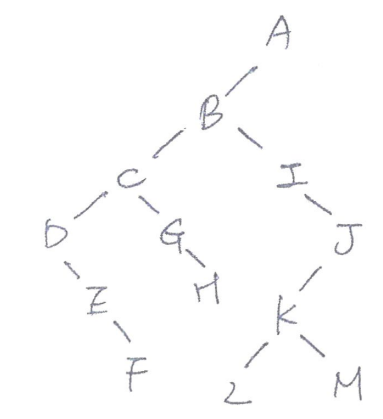 A
B
C I
D G J
E H K
F L M